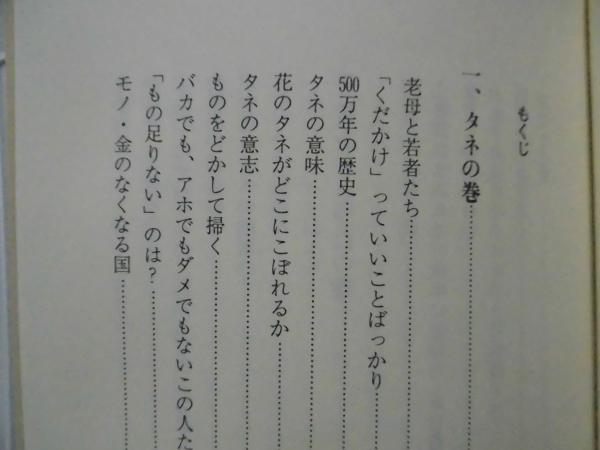 もくじ
一、タネの巻
老母と若者たち
「くだかけ」っていいことばっかり
500万年の歴史
タネの意味
花のタネがどこにこぼれるか
タネの意志
ものをどかして掃く
バカでも、アホでもダメでもないこの人た
「もの足りない」のは?
モノ・金のなくなる国